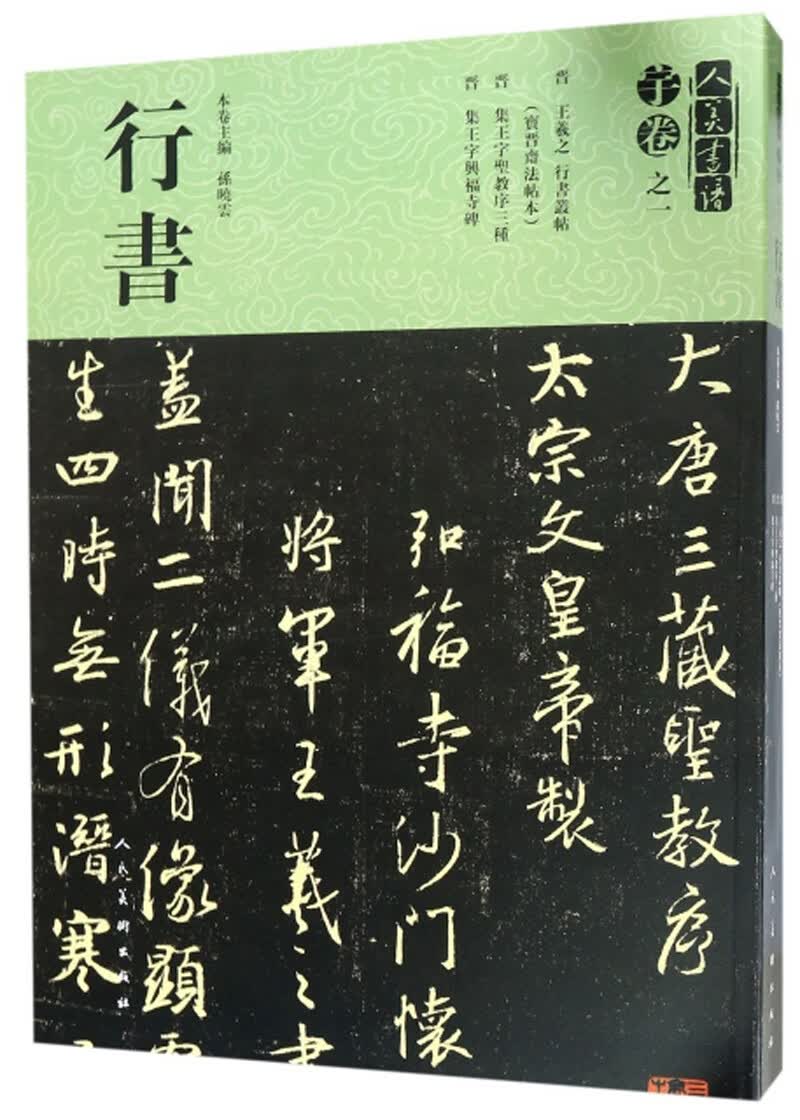 人美書譜
芋卷之一
晋 王羲之 行書叢帖
(寶晋齋法帖本)
晋 集王字聖教序三種
晋 集王字興福寺碑
本卷主編 孫曉雲
行書
大唐三藏聖教序
太宗文皇帝製
弘福寺沙門懷
將軍王羲之書
蓋聞二儀有像顯
生四時無形潛寒
人民美術出版社
人民美術出版社